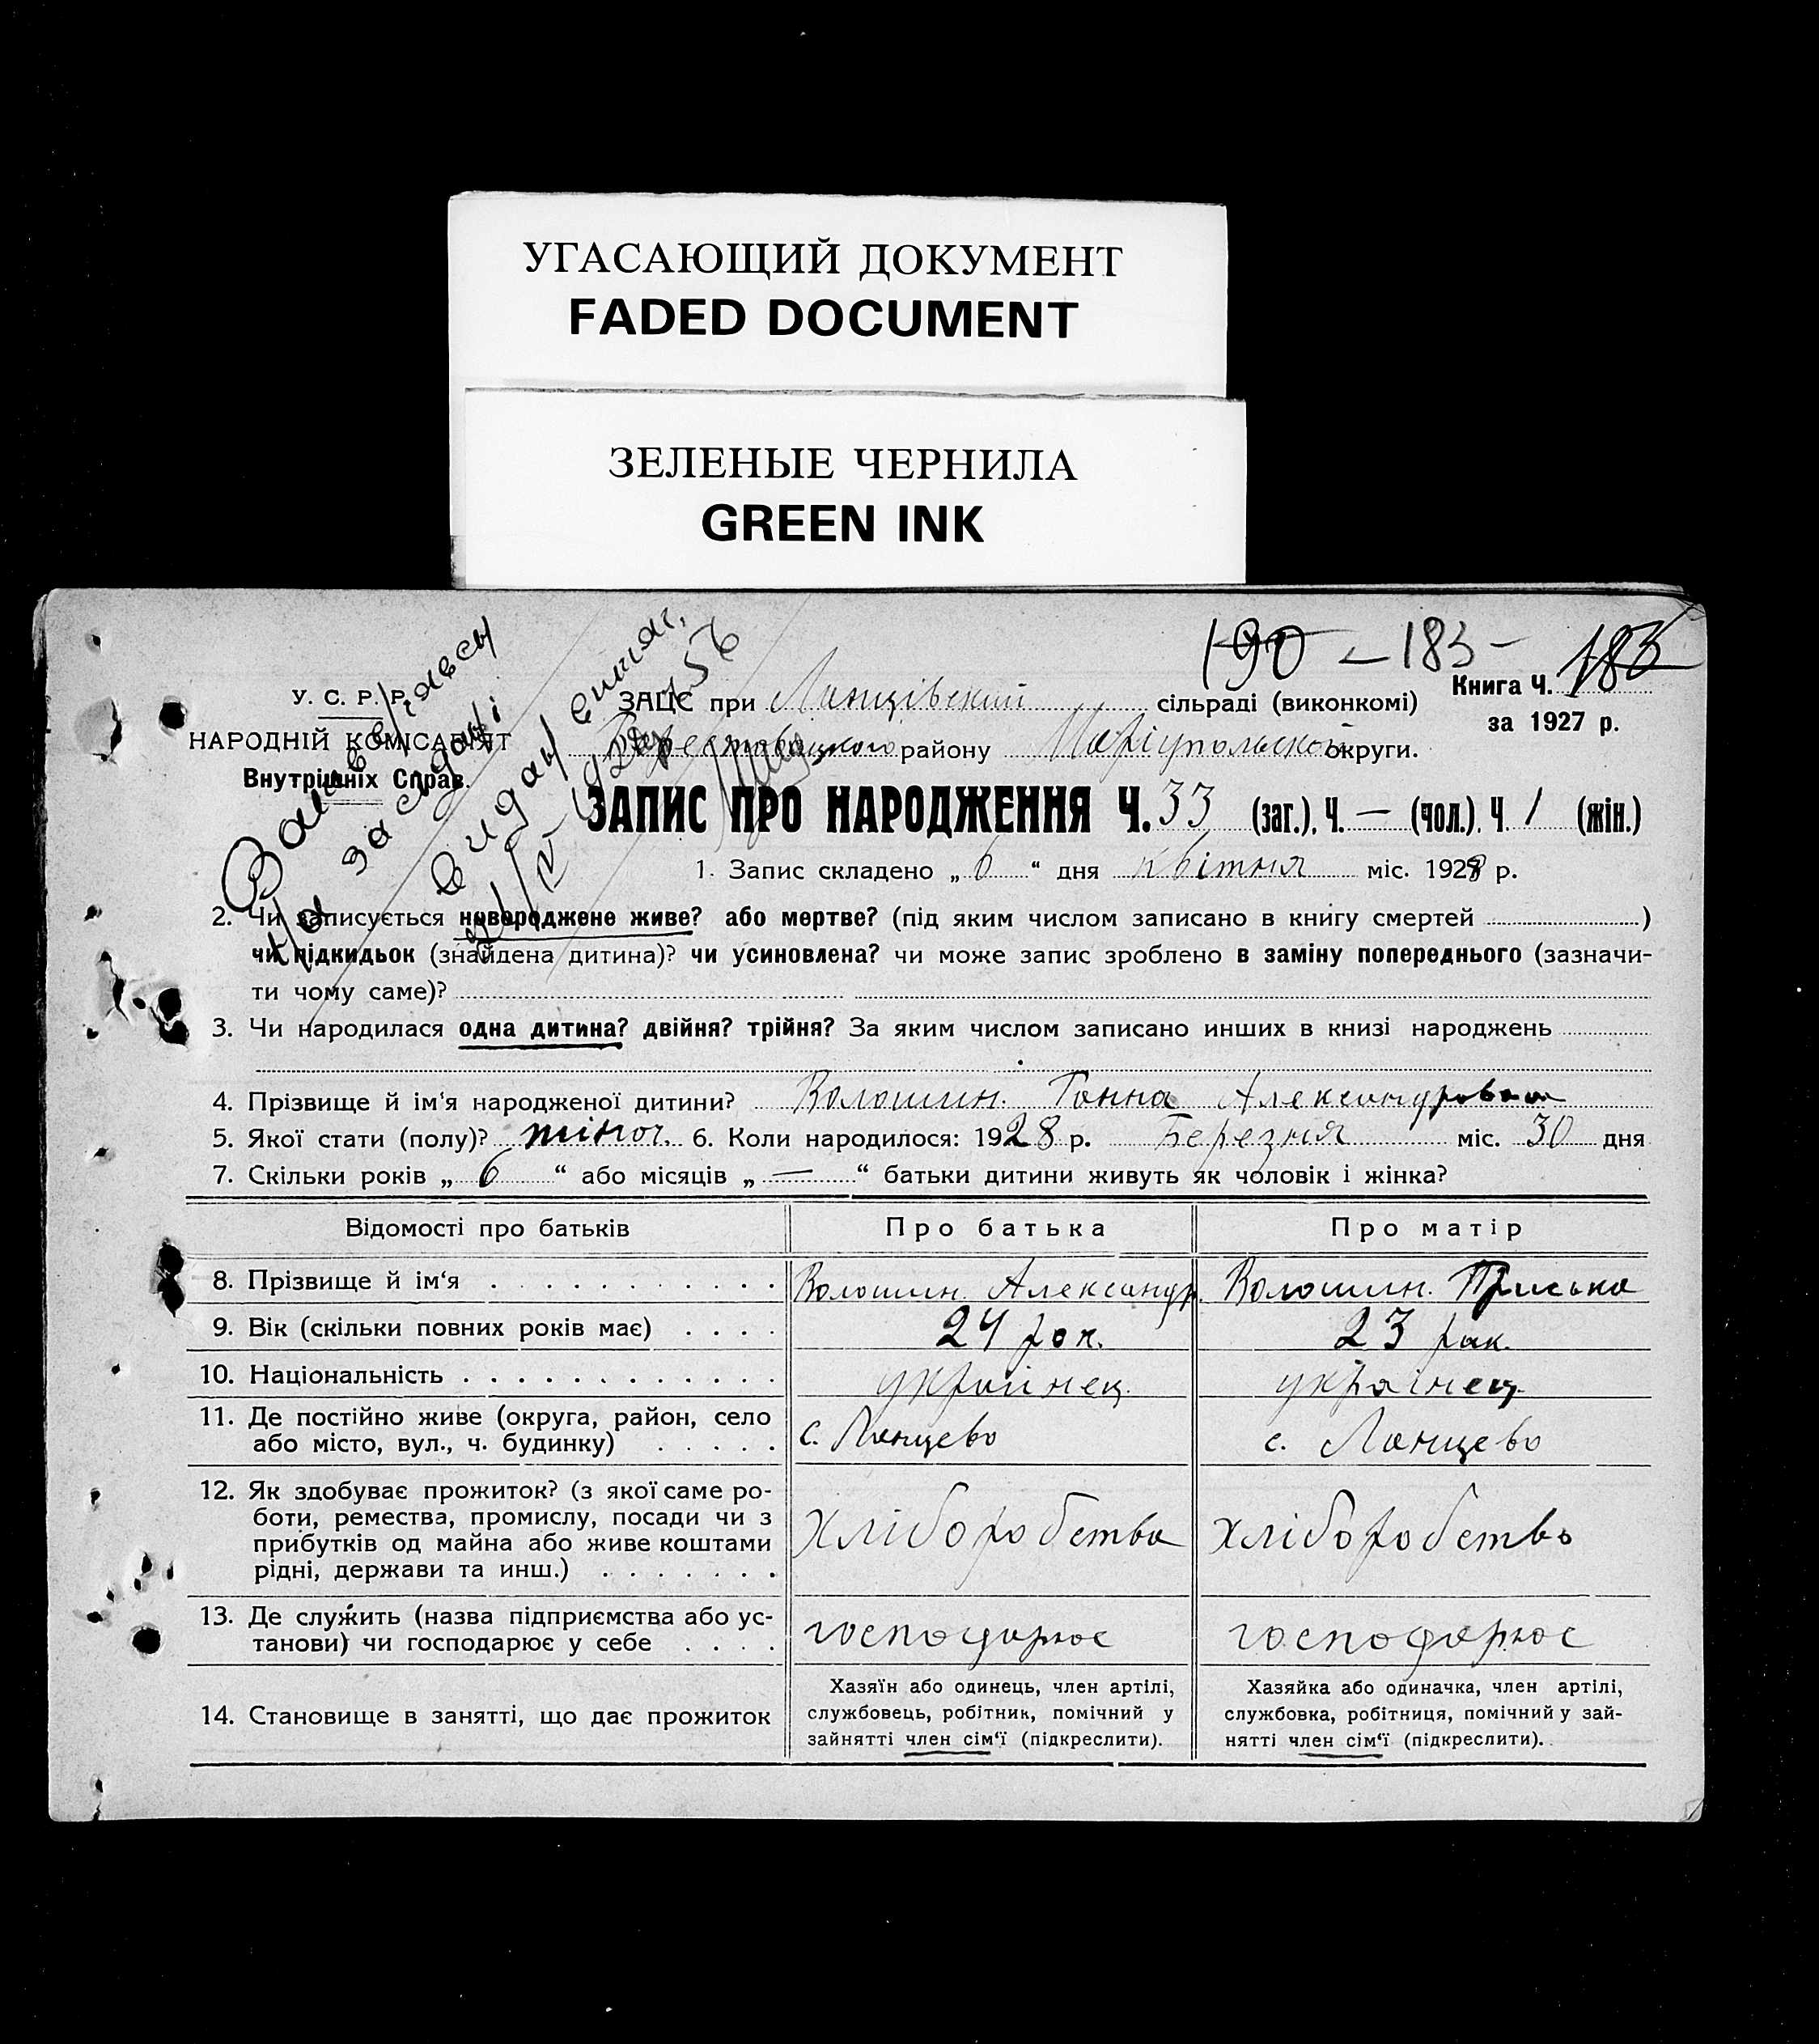 УГАСАЮЩИЙ ДОКУМЕНТ
FADED DOCUMENT
ЗЕЛЕНЫЕ ЧЕРНИЛА
GREEN INK
190 — 183 — 183
У. С. Р. Р.
НАРОДНІЙ КОМІСАРІЯТ
Внутрішніх Справ.
ЗАЦС при Ланцівский сільраді (виконкомі)
Книга Ч. 183
за 1927 р.
району Маріупольської округи.
ЗАПИС ПРО НАРОДЖЕННЯ Ч. 33 (заг.), Ч. — (чол.), Ч. 1 (жін.)
1. Запис складено „ 6 “ дня квітня міс. 1928 р.
2. Чи записується новороджене живе? або мертве? (під яким числом записано в книгу смертей )
чи підкидьок (знайдена дитина)? чи усиновлена? чи може запис зроблено в заміну попереднього (зазначи-
ти чому саме)?
3. Чи народилася одна дитина? двійня? трійня? За яким числом записано инших в книзі народжень
4. Прізвище й ім‘я народженої дитини? Волошин. Ганна Александровна
5. Якої стати (полу)? жіноч. 6. Коли народилося: 1928 р. Березня міс. 30 дня
7. Скільки років „ 6 “ або місяців „ — “ батьки дитини живуть як чоловік і жінка?
Відомості про батьків Про батька Про матір
8. Прізвище й ім‘я Волошин. Александр. Волошин. Приська
9. Вік (скільки повних років має) 24 рок. 23 рак.
10. Національність украинец. українец.
11. Де постійно живе (округа, район, село
або місто, вул., ч. будинку) с. Ланцево с. Ланцево
12. Як здобуває прожиток? (з якої саме ро-
боти, ремества, промислу, посади чи з
прибутків од майна або живе коштами
рідні, держави та инш.) хліборобства хліборобство
13. Де служить (назва підприємства або ус-
танови) чи господарює у себе господарює господарює
14. Становище в занятті, що дає прожиток
Хазяїн або одинець, член артілі,
службовець, робітник, помічний у
зайнятті член сім‘ї (підкреслити).
Хазяйка або одиначка, член артілі,
службовка, робітниця, помічний у зай-
нятті член сім‘ї (підкреслити).